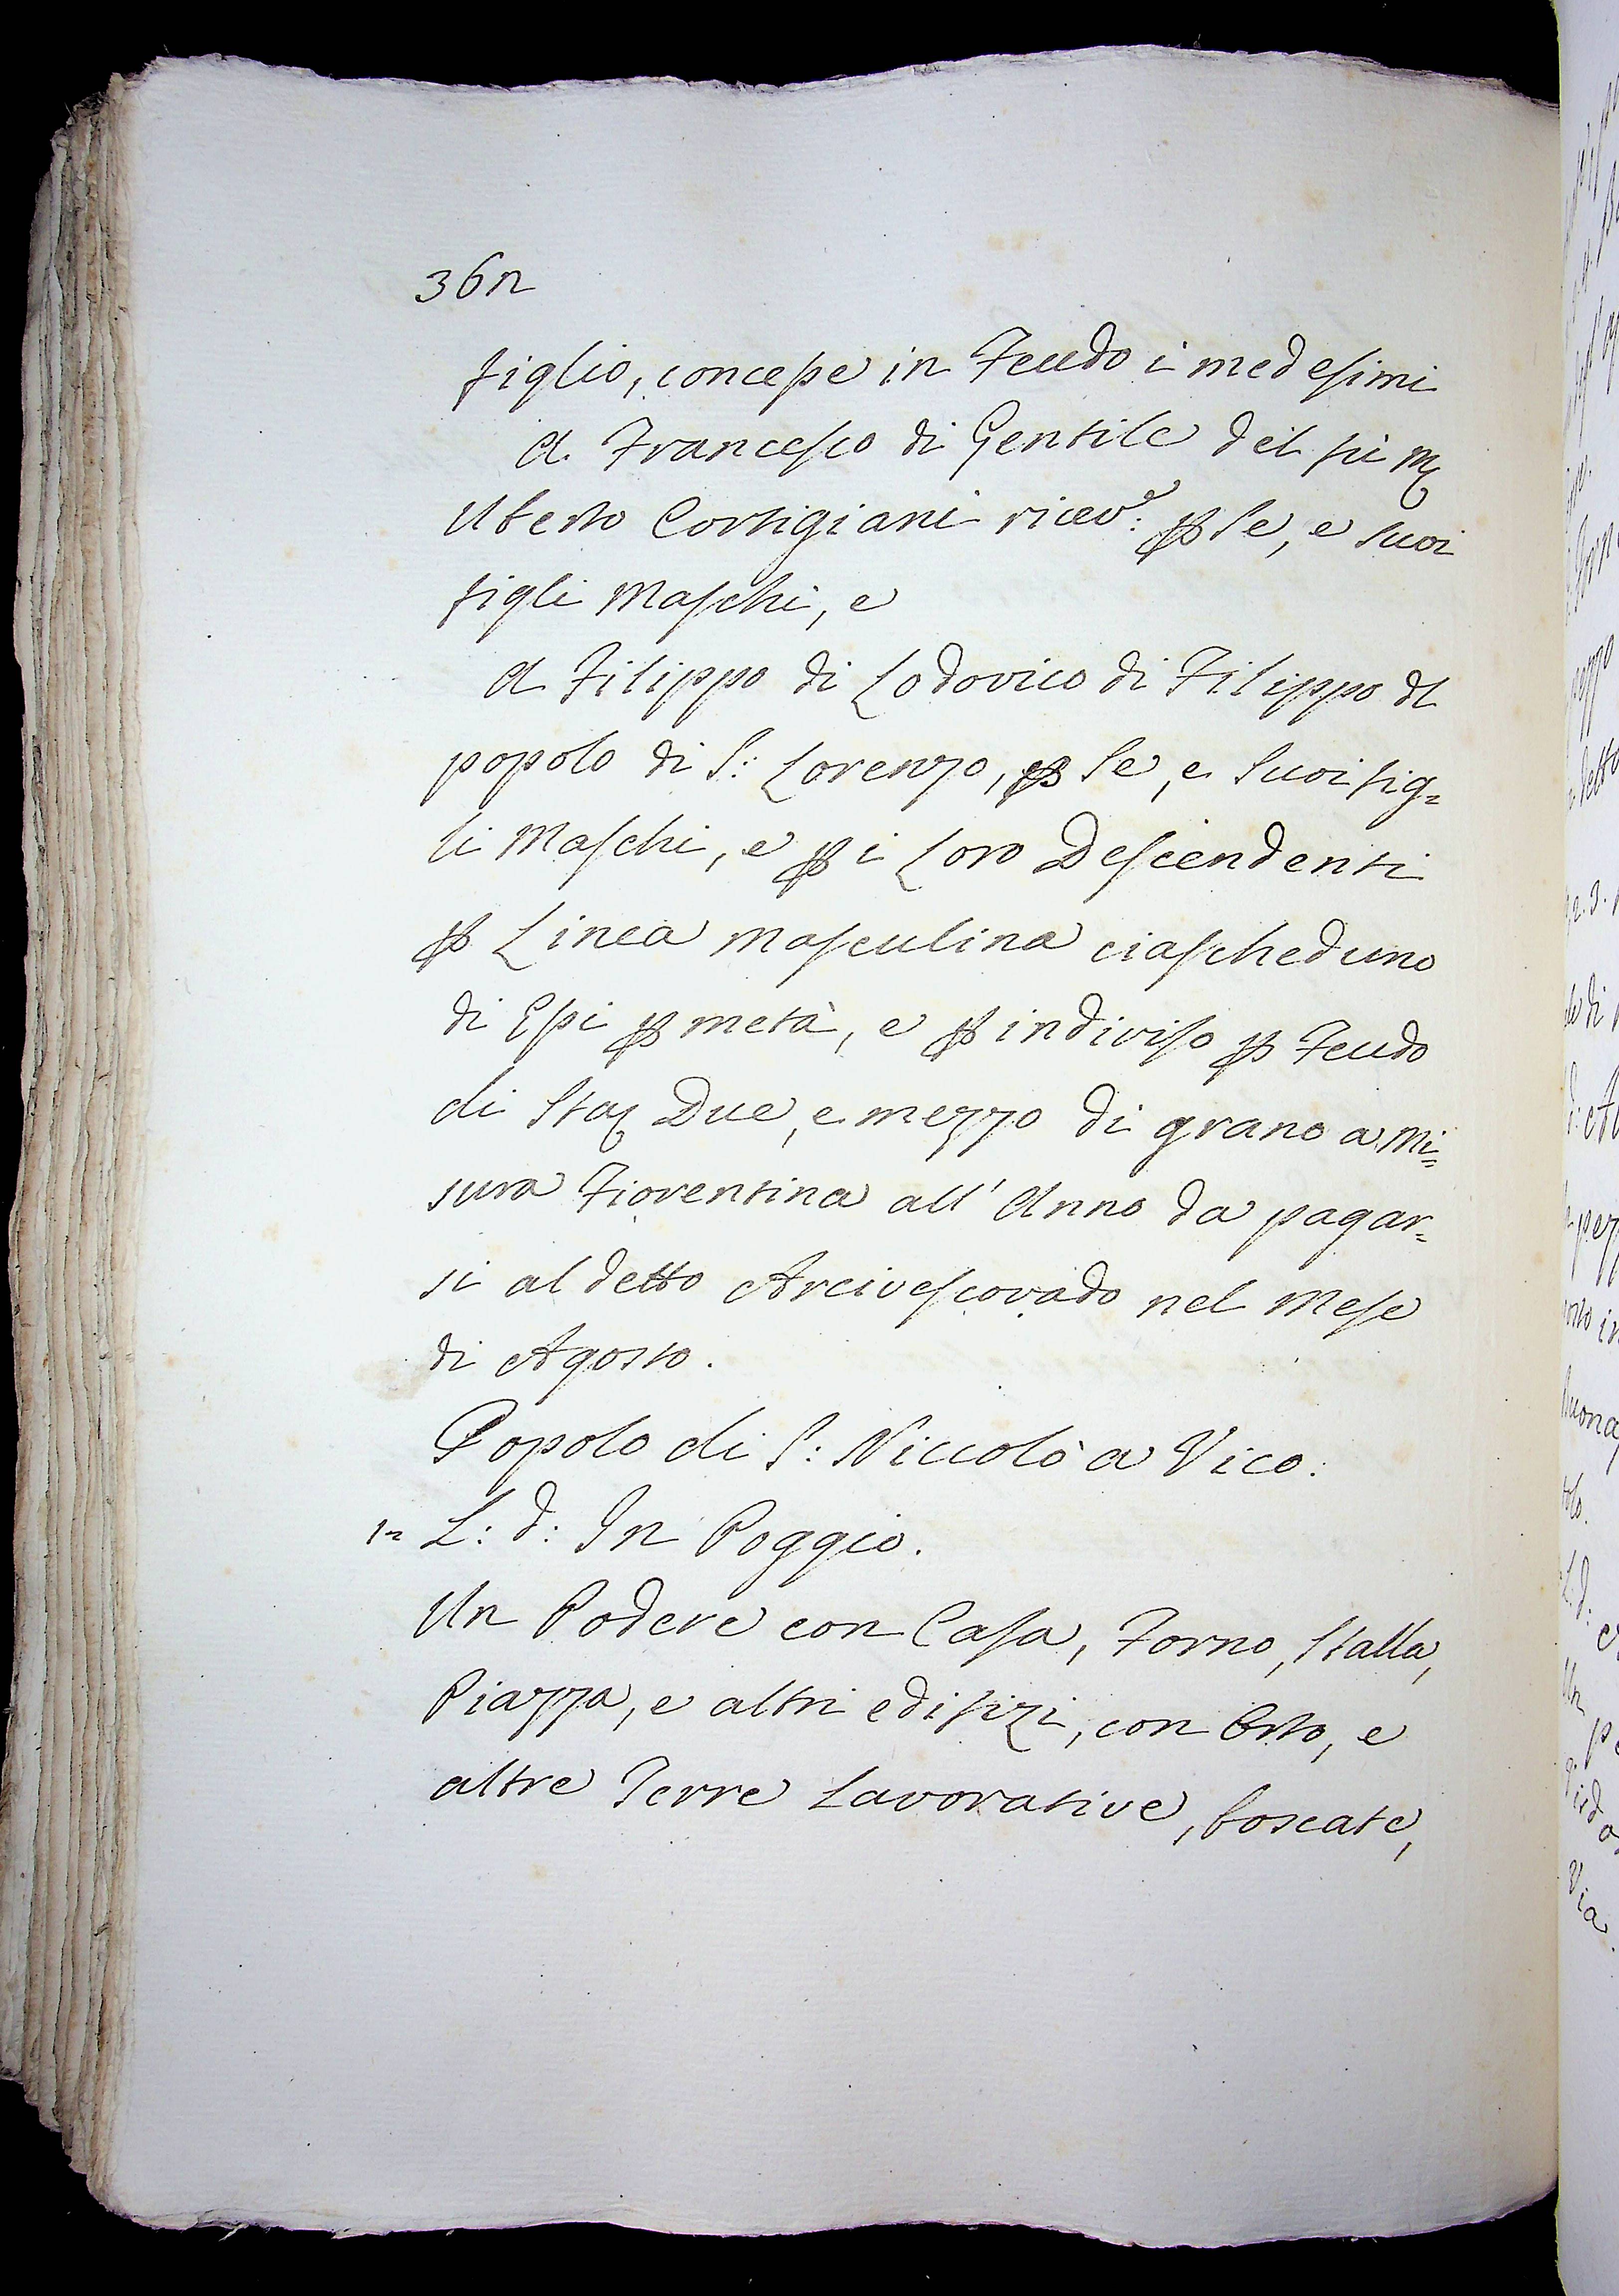 362
figlio, concesse in Feudo i medesimi
A Francesco di Gentile del fù M
Uberto Cortigiani ricev.e p Se, e suoi
figli Maschi, e
A Filippo di Lodovico di Filippo dl
popolo di S: Lorenzo, p Se, e Suoi fig=
li Maschi, e p i Loro Descendenti
p Linea masculina ciascheduno
di Essi p metà, e p indiviso p Feudo
di Sta Due, e mezzo di grano a Mi=
sura Fiorentina all' Anno da pagar=
si al detto Arcivescovado nel Mese
di Agosto.
Popolo di S: Niccolò a Vico.
1= L: d: In Poggio.
Un Podere con Casa, Forno, Stalla,
Piazza, e altri edifizi, con Orto, e
altre Terre Lavorative, boscate,